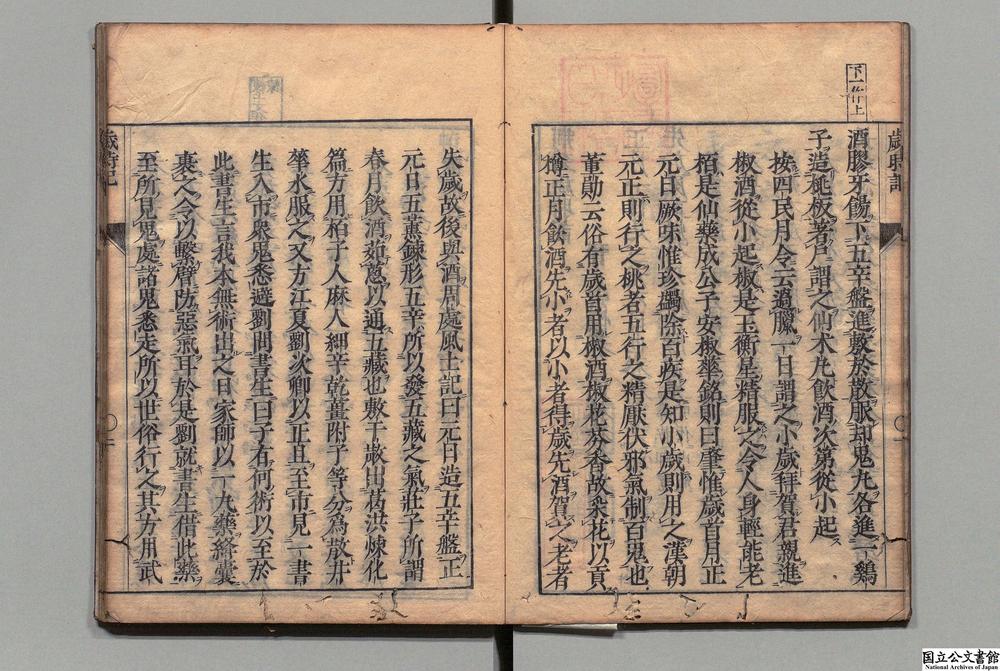 下一作上
歲時記
酒膠牙餳下五辛盤進敷於散服却鬼丸各進一鷄
子造桃板著戸謂之仙木凡飲酒次第從小起
按四民月令云過臘一日謂之小歲拜賀君親進
椒酒從小起椒是玉衡星精服之令人身輕能老
栢是仙藥成公子安椒華銘則曰肇惟歲首月正
元日厥味惟珍蠲除百疾是知小歲則用之漢朝
元正則行之桃者五行之精厭伏邪氣制百鬼也
董勛云俗有歲首用椒酒椒花芬香故采花以貢
樽正月飲酒先小者以小者得歲先酒賀之老者
失歲故後與酒周處風土記曰元日造五辛盤正
元日五薫鍊形五辛所以發五藏之氣莊子所謂
春月飲酒茹葱以通五藏也敷于散出葛洪煉化
篇方用栢子人麻人細辛乾薑附子等分爲散井
華水服之又方江夏劉次卿以正旦至市見一書
生入市衆鬼悉避劉問書生曰子有何術以至於
此書生言我本無術出之日家師以一丸藥絳囊
裹之令以繫臂防惡氣耳於是劉就書生借此藥
至所見鬼處諸鬼悉走所以世俗行之其方用武
歲時記
国立公文書館
National Archives of Japan